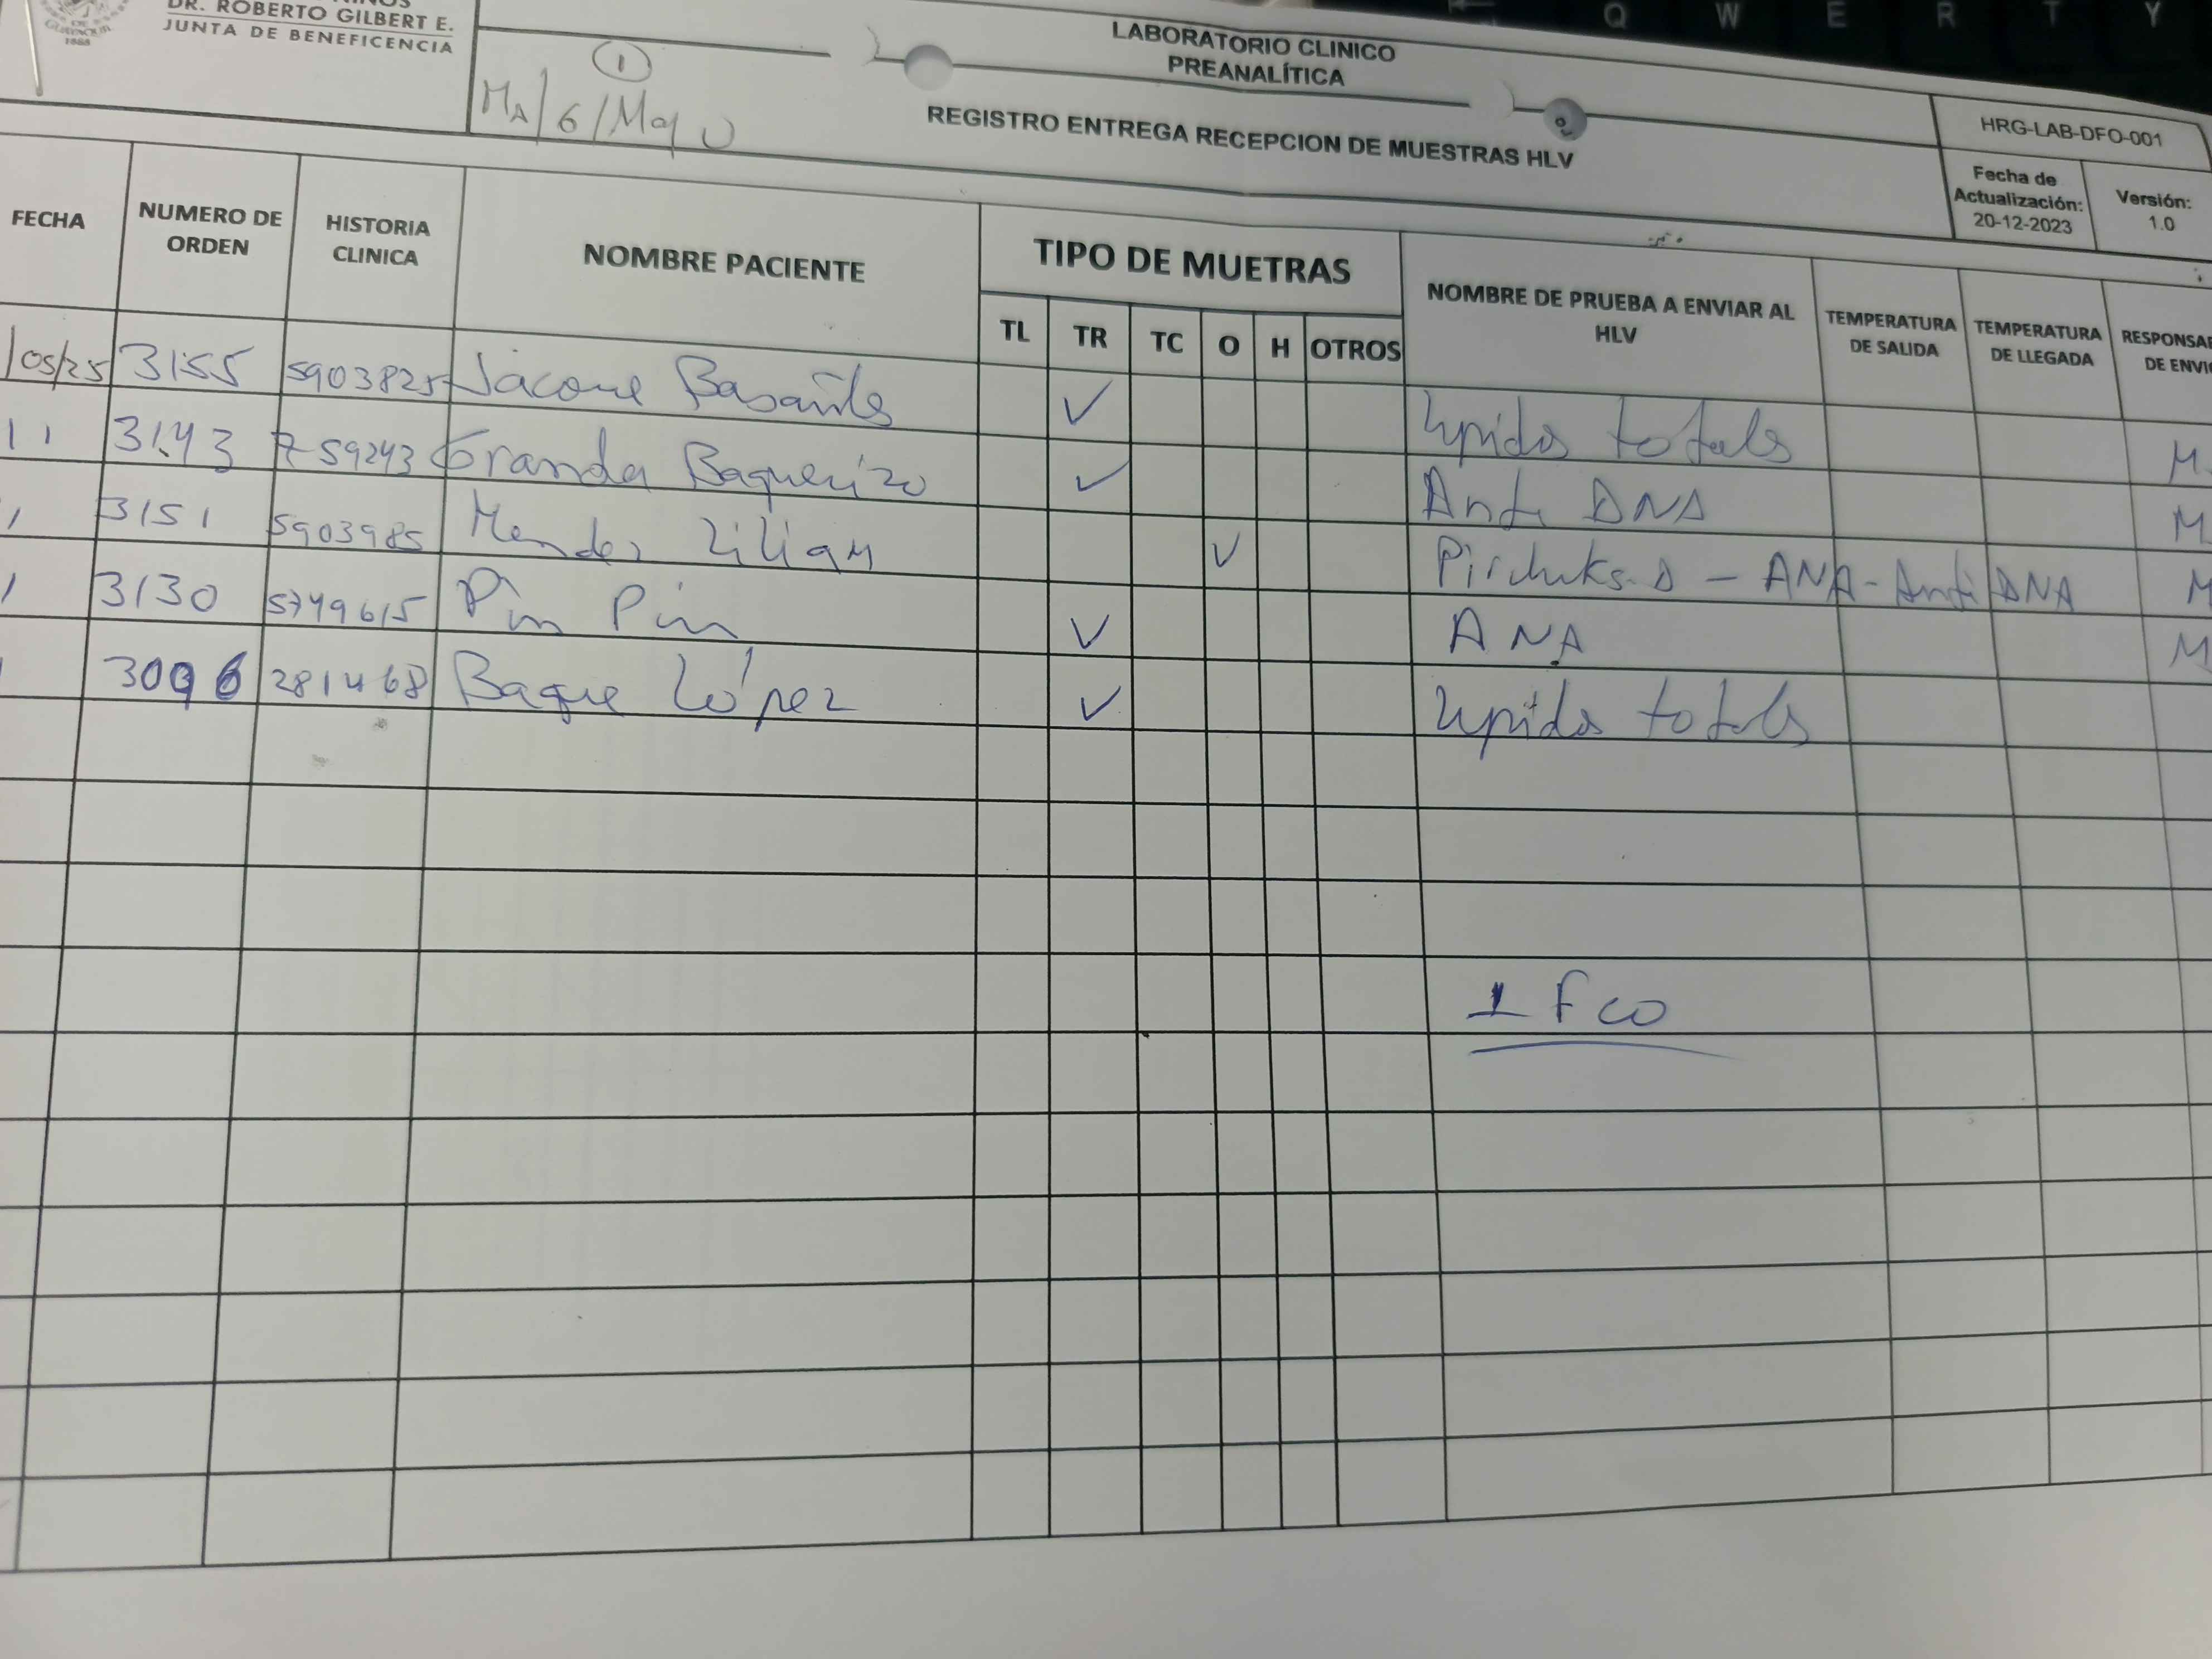 DR. ROBERTO GILBERT E.
JUNTA DE BENEFICENCIA
1888
1
MA/6/Mayo
LABORATORIO CLINICO
PREANALÍTICA
REGISTRO ENTREGA RECEPCION DE MUESTRAS HLV
HRG-LAB-DFO-001
Fecha de Actualización: 20-12-2023
Versión: 1.0
Q W E R T Y
FECHA NUMERO DE ORDEN HISTORIA CLINICA NOMBRE PACIENTE TIPO DE MUETRAS NOMBRE DE PRUEBA A ENVIAR AL HLV TEMPERATURA DE SALIDA TEMPERATURA DE LLEGADA RESPONSA DE ENVI
TL TR TC O H OTROS
/05/25 3155 5903825 Jacome ✓ Lipidos totals M
11 3143 759243 Granda Baquerizo ✓ Anti DNA M
3151 5903985 Mendez Lilian ✓ - ANA - Anti DNA M
3130 5749615 Pin Pin ✓ ANA M
3096 281468 Baque López ✓ Lipidos totals
1 Fco